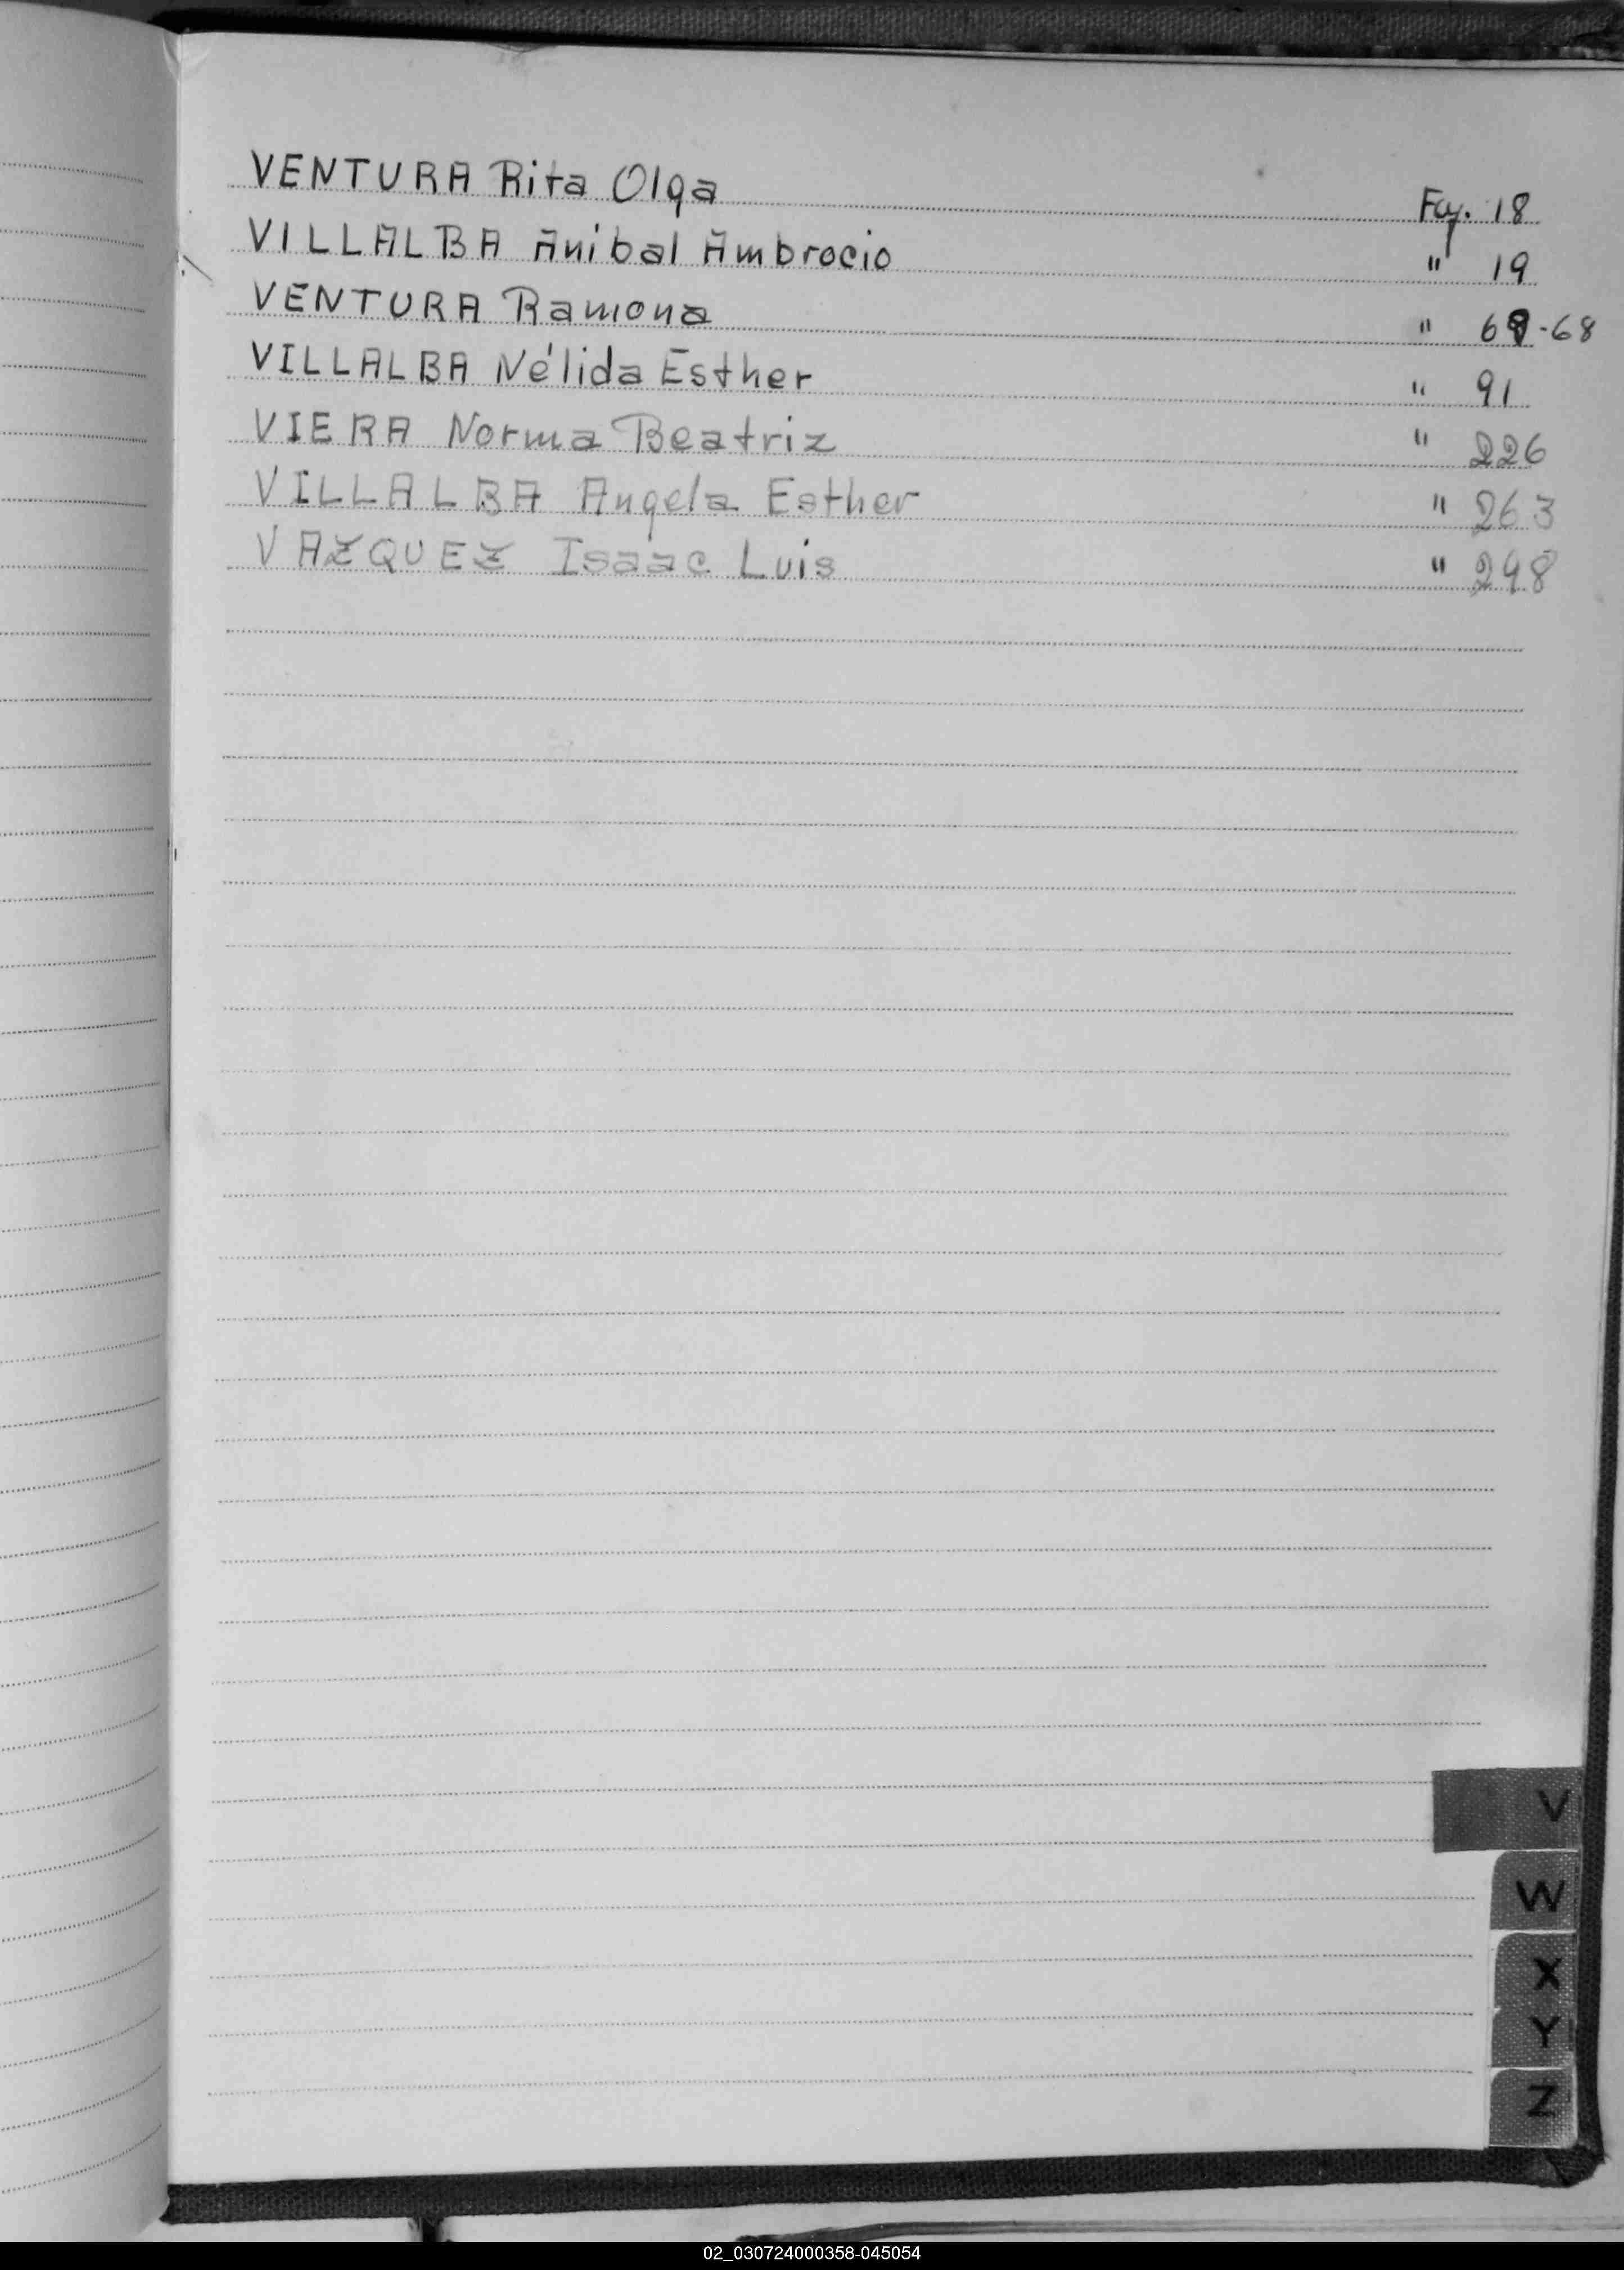 VENTURA Rita Olga Fay. 18
VILLALBA Anibal Ambrocio " 19
VENTURA Ramona " 68-68
VILLALBA Nélida Esther " 91
VIERA Norma Beatriz " 226
VILLALBA Angela Esther " 263
VAZQUEZ Isaac Luis " 298
V
W
X
Y
Z
02_030724000358-045054